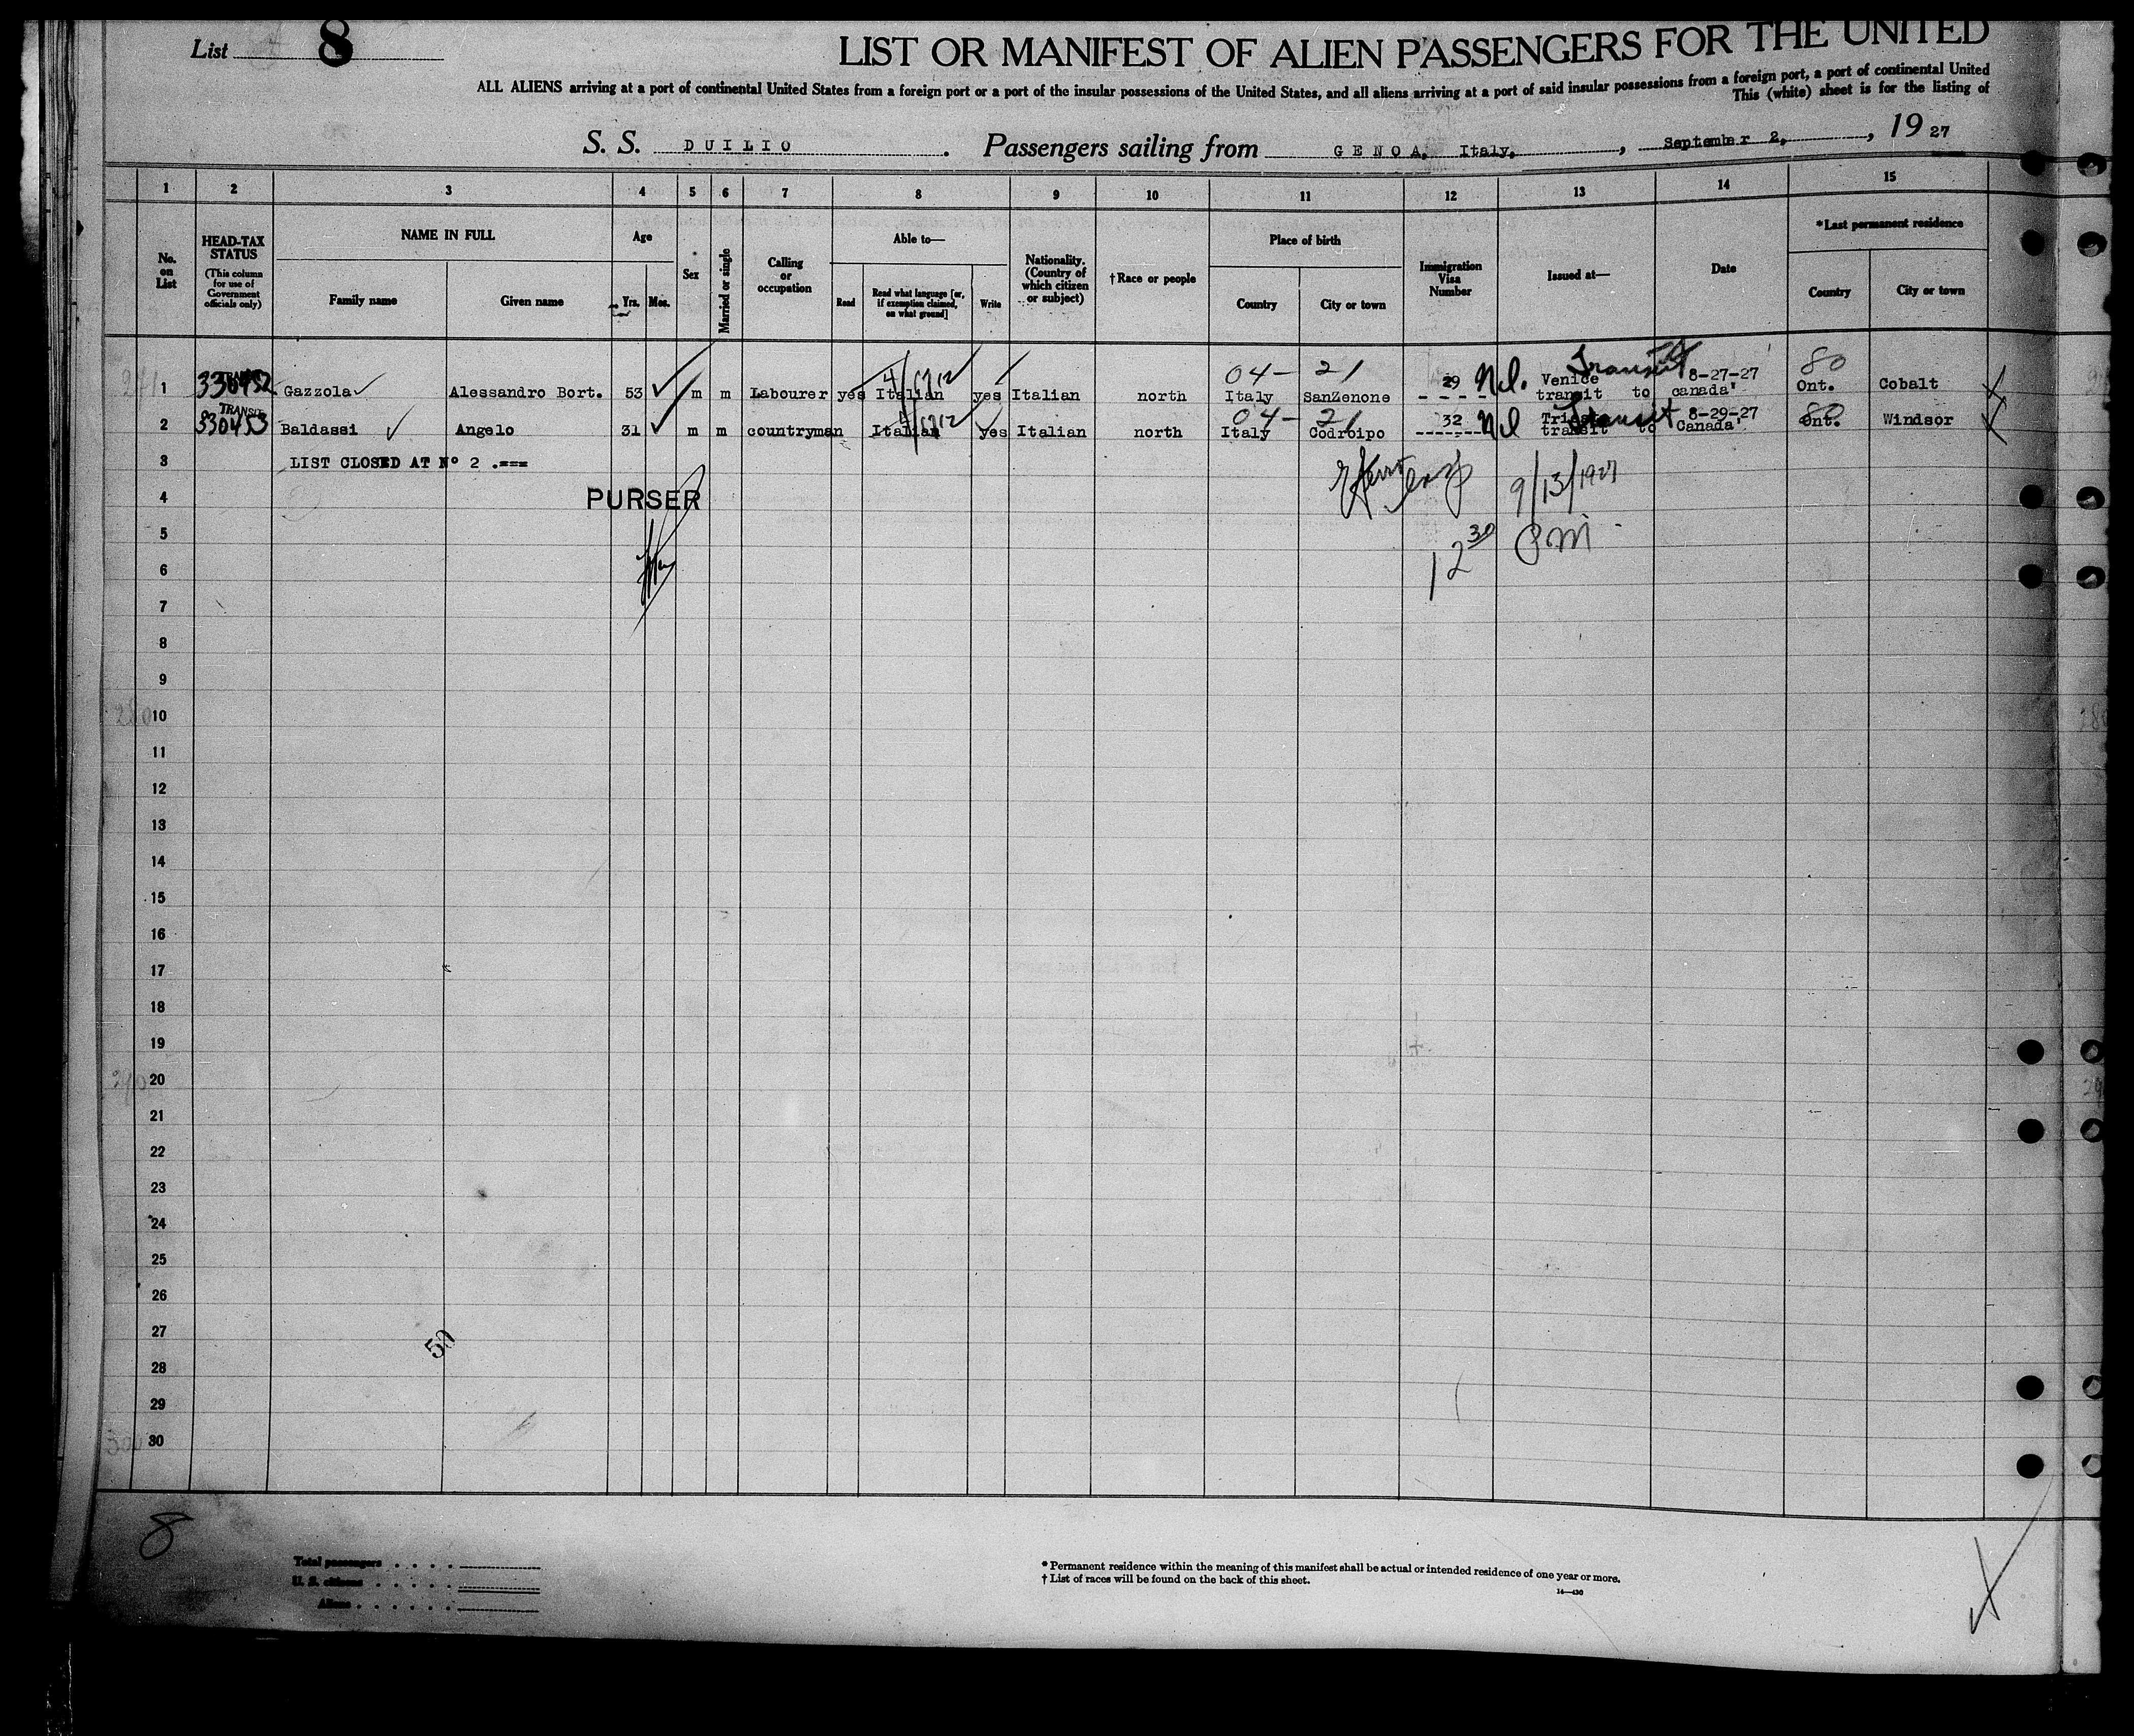 List 8
LIST OR MANIFEST OF ALIEN PASSENGERS FOR THE UNITED
ALL ALIENS arriving at a port of continental United States from a foreign port or a port of the insular possessions of the United States, and all aliens arriving at a port of said insular possessions from a foreign port, a port of continental United
This (white) sheet is for the listing of
S. S. DUILIO. Passengers sailing from GENOA, Italy, , September 2, , 1927
1 2 3 4 5 6 7 8 9 10 11 12 13 14 15
No. on List
HEAD-TAX STATUS
(This column for use of Government officials only)
NAME IN FULL
Family name
Given name
Age
Yrs. Mos.
Sex
Married or single
Calling or occupation
Able to—
Read
Read what language [or, if exemption claimed, on what ground]
Write
Nationality. (Country of which citizen or subject)
†Race or people
Place of birth
Country
City or town
Immigration Visa Number
Issued at—
Date
*Last permanent residence
Country
City or town
04- 21 Transit 80
1 TRANSIT 330452 Gazzola Alessandro Bort. 53 m m Labourer yes Italian yes Italian north Italy SanZenone 29 Nil. Venice 8-27-27 Ont. Cobalt
transit to canada"
04- 21 Transit 80
2 TRANSIT 330453 Baldassi Angelo 31 m m countryman Italian yes Italian north Italy Codroipo 32 Nil 8-29-27 Ont. Windsor
transit to Canada"
3 LIST CLOSED AT N° 2 .===
4 PURSER 9/13/1927
5 12 30 PM
6
7
8
9
280 10
11
12
13
14
15
16
17
18
19
290 20
21
22
23
24
25
26
27
50
28
29
300 30
8
Total passengers
U. S. citizens
Aliens
* Permanent residence within the meaning of this manifest shall be actual or intended residence of one year or more.
† List of races will be found on the back of this sheet.
14—430